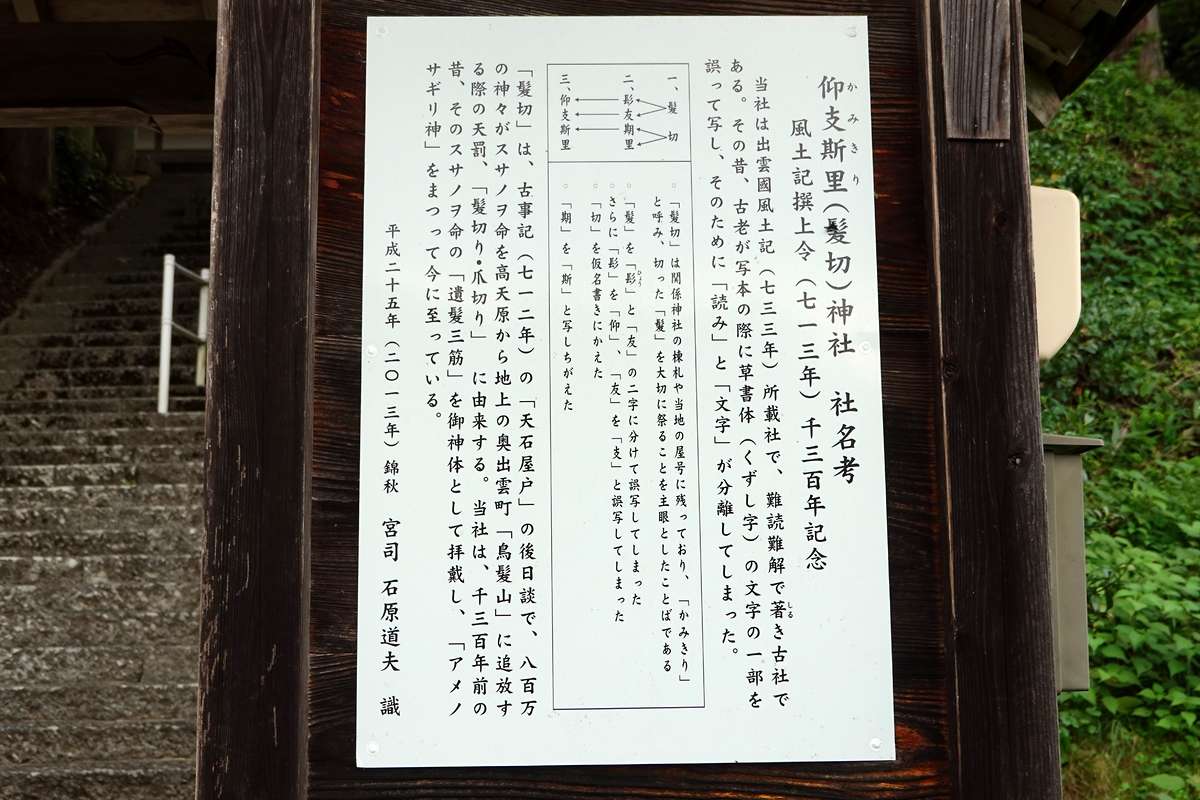 仰支斯里(髪切)神社 社名考
かみきり
風土記撰上令(七一三年)千三百年記念
当社は出雲國風土記(七三三年)所載社で、難読難解で著き古社で
しる
ある。その昔、古老が写本の際に草書体(くずし字)の文字の一部を
誤って写し、そのために「読み」と「文字」が分離してしまった。
一、髪 切
二、髟友期里
三、仰支斯里
○「髪切」は関係神社の棟札や当地の屋号に残っており、「かみきり」
と呼み、切った「髪」を大切に祭ることを主眼としたことばである
○「髪」を「髟」と「友」の二字に分けて誤写してしまった
ひょう
さらに「髟」を「仰」、「友」を「支」と誤写してしまった
○「切」を仮名書きにかえた
○「期」を「斯」と写しちがえた
「髪切」は、古事記(七一二年)の「天石屋戸」の後日談で、八百万
の神々がスサノヲ命を高天原から地上の奥出雲町「鳥髪山」に追放す
る際の天罰、「髪切り・爪切り」に由来する。当社は、千三百年前の
昔、そのスサノヲ命の「遺髪三筋」を御神体として拝戴し、「アメノ
サギリ神」をまつって今に至っている。
平成二十五年(二〇一三年)錦秋 宮司 石原道夫 識